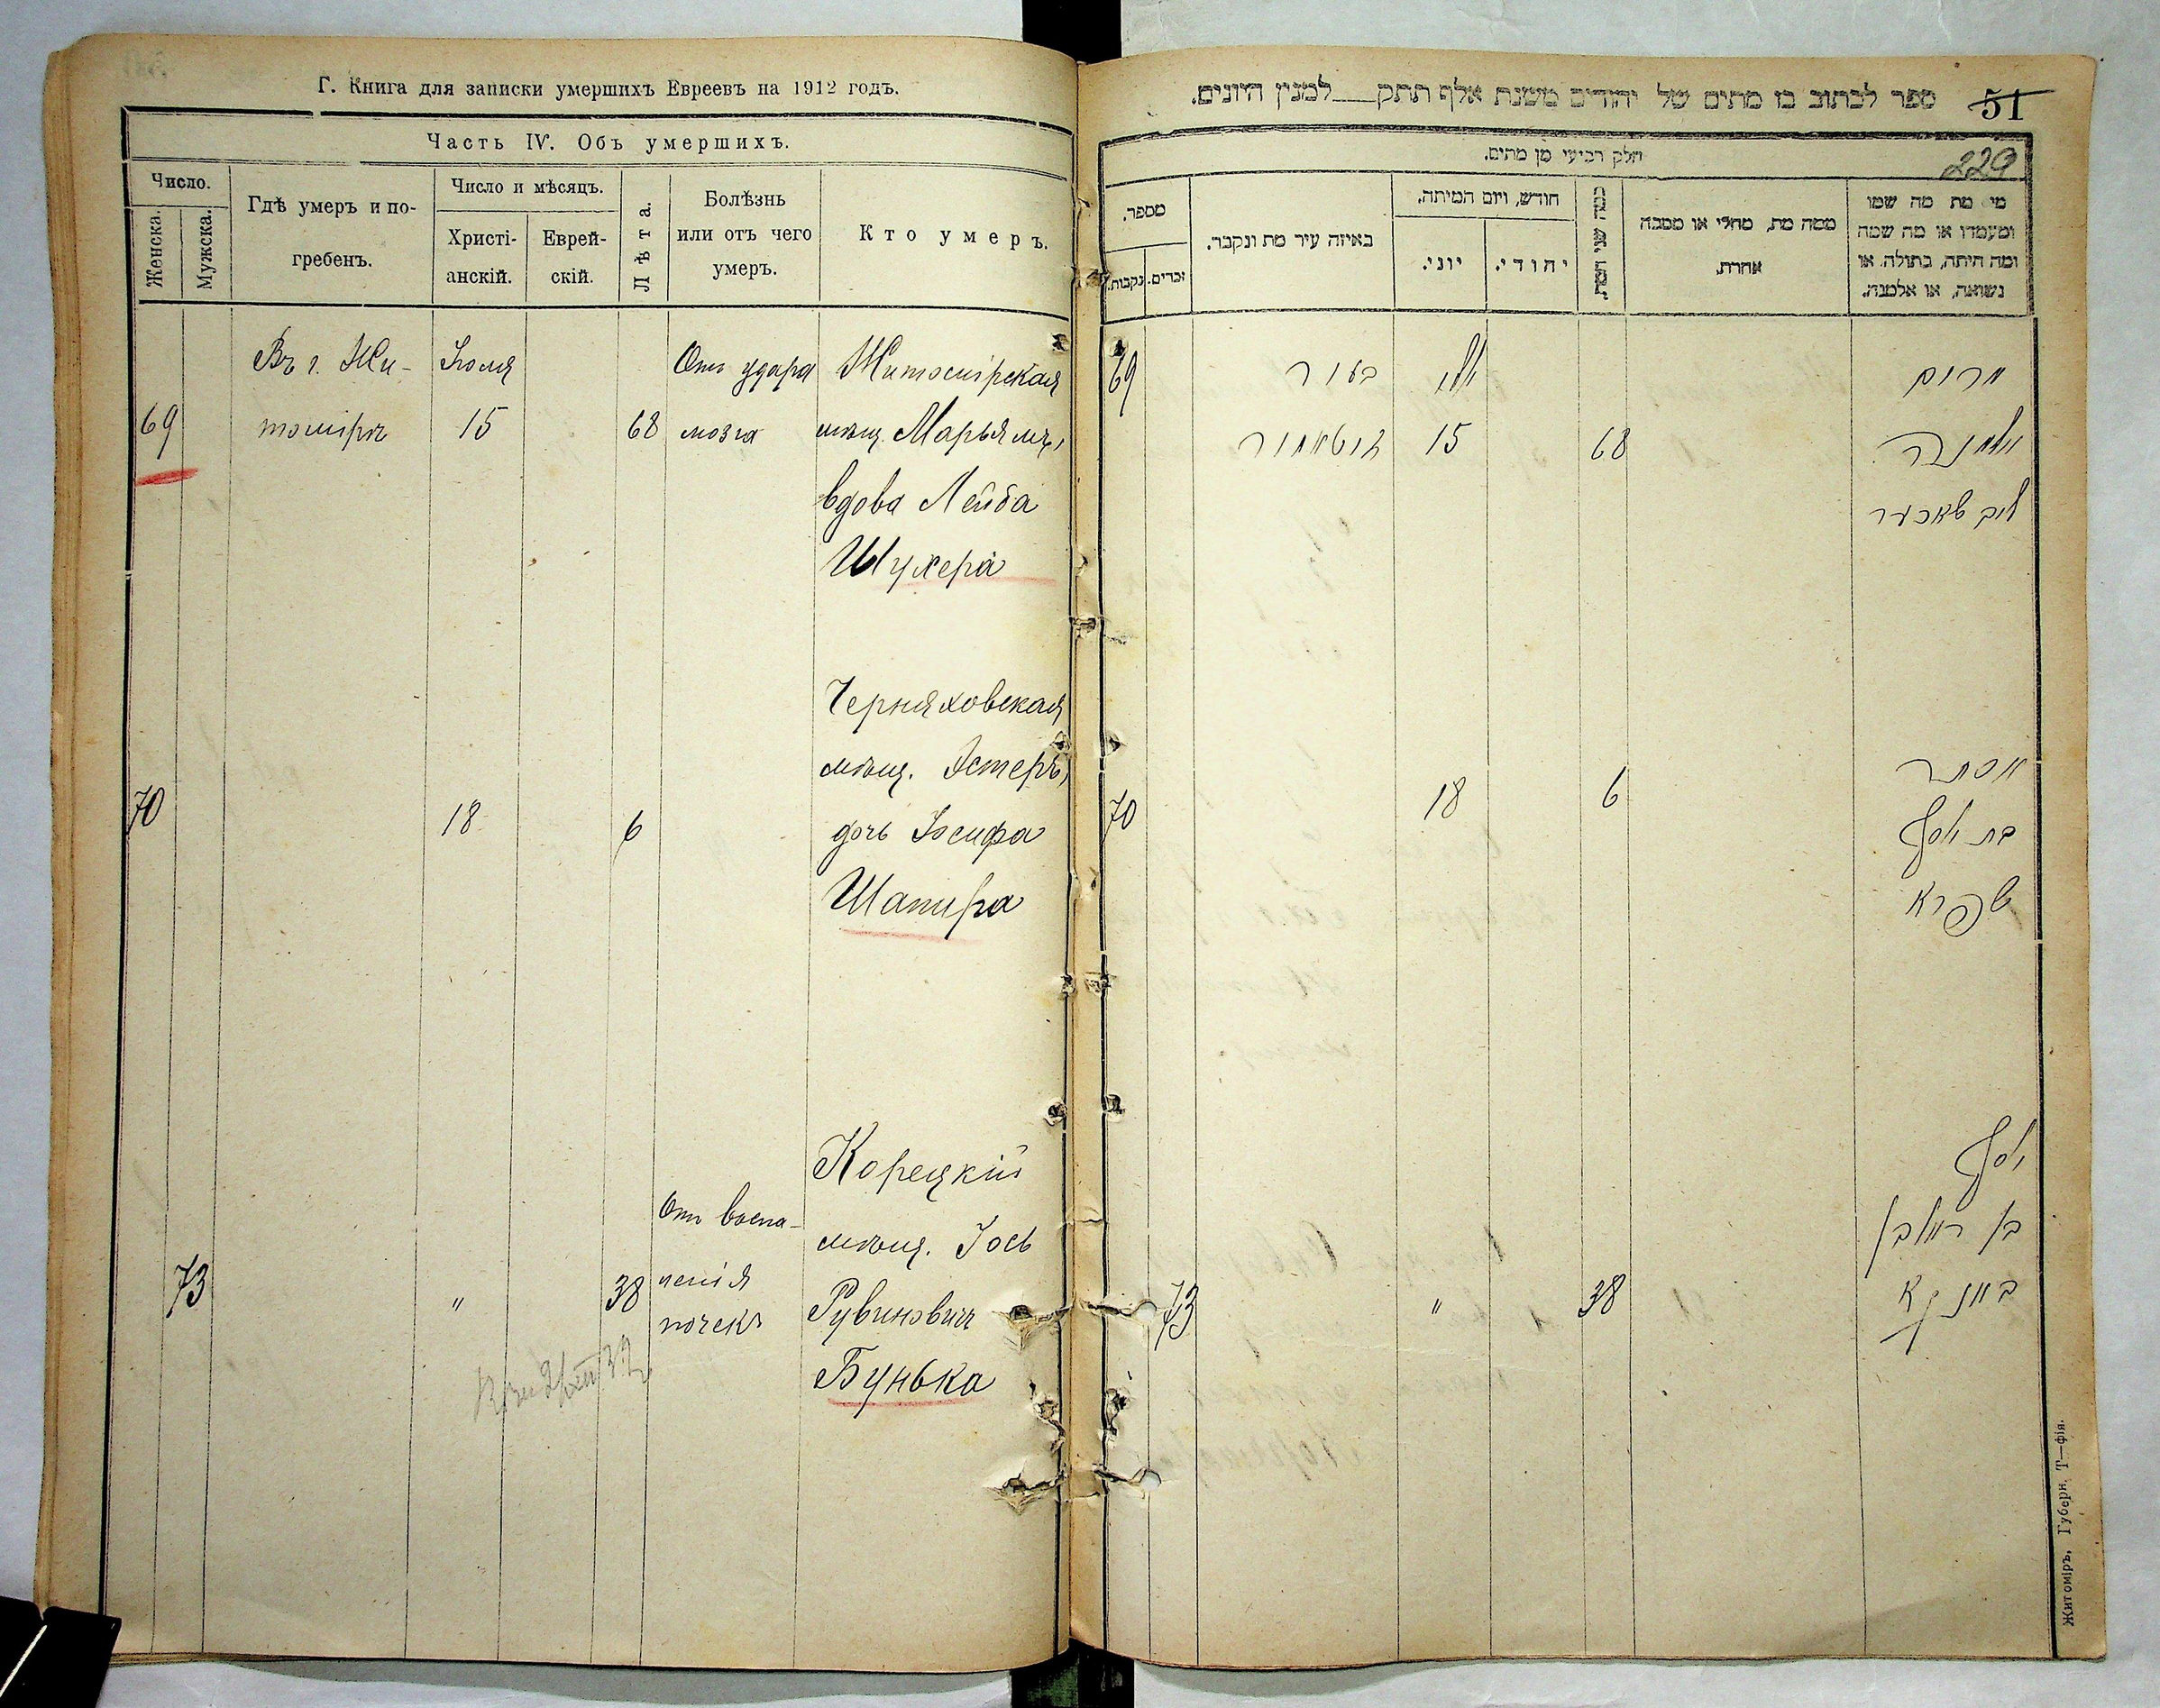 Г. Книга для записки умершихъ Евреевъ на 1912 годъ.
Часть IV. Объ умершихъ.
Число.
Женска.
Мужска.
Гдѣ умеръ и по-
гребенъ.
Число и мѣсяцъ.
Христі-
анскій.
Еврей-
скій.
Лѣта.
Болѣзнь
или отъ чего
умеръ.
Кто умеръ.
69
Въ г. Жи-
томірѣ
Іюля
15
68
Отъ удара
мозга
Житомірская
мѣщ. Марьямъ,
вдова Лейба
Шухера
70
18
6
Черняховская
мѣщ. Эстеръ,
дочь Іосифа
Шапира
73
"
38
Отъ воспа-
ленія
почекъ
Корецкій
мѣщ. Іось
Рувиновичъ
Бунька
ספר לכתוב בו מתים של יהודים משנת אלף תתק___למנין היונים.
51
229
חלק רביעי מן מתים.
מספר.
נקבות.
זכרים.
באיזה עיר מת ונקבר.
חודש, ויום המיתה.
יוני.
יהודי.
כמה שני המת.
ממה מת, מחלי או מסבה
אחרת.
מי מת מה שמו
ומעמדו או מה שמה
ומה היתה, בתולה או
נשואה, או אלמנה.
69
בעיר
זיטאמיר
יולי
15
68
מרים
אלמנה
ליב שאכער
70
18
6
אסתר
בת יוסף
שפירא
73
"
38
יוסף
בן ראובן
בונקא
Житоміръ, Губерн. Т—фія.